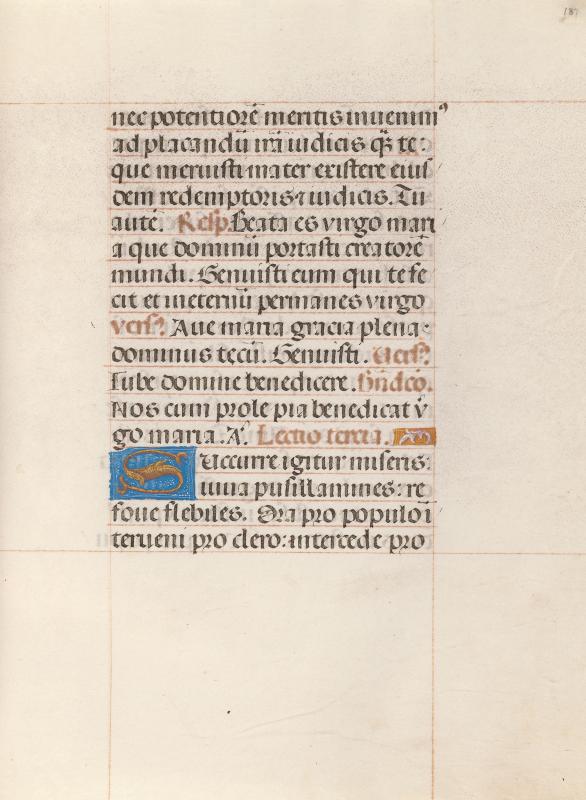 187
nec potentiorē meritis inuenimꝰ
ad placandū irā iudicis qȝ te:
que meruisti mater existere eius
dem redemptoris ⁊ iudicis. Tu
autē. Resp. Beata es virgo mari
a que dominū portasti creatorē
mundi. Genuisti eum qui te fe
cit et ineternū permanes virgo
Vers? Aue maria gracia plena
dominus tecū. Genuisti. Vers?
Iube domine benedicere. Bn̄dco.
Nos cum prole pia benedicat v̄
go maria. A. Lectio tercia.
Succurre igitur miseris:
iuua pusillamines: re
foue flebiles. Ora pro populo ī
terueni pro clero: intercede pro